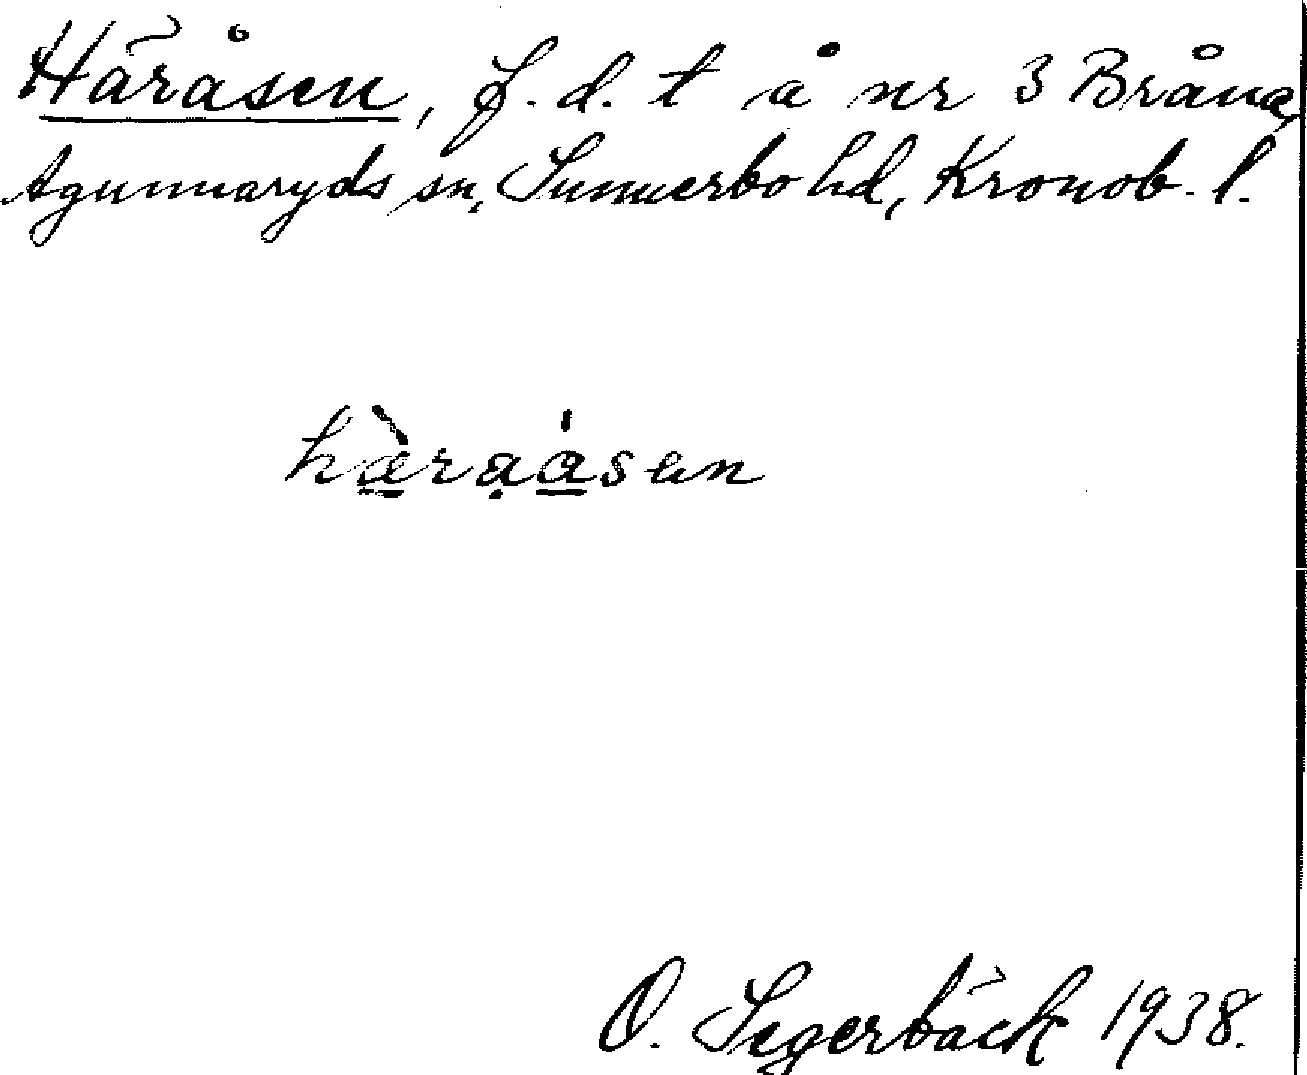 Häråsen, f. d. t å nr 3 Bråna,
Agunnaryds sn, Sunnerbo hd, Kronob. l.
hæ̀raåsen
O. Segerbäck 1938.